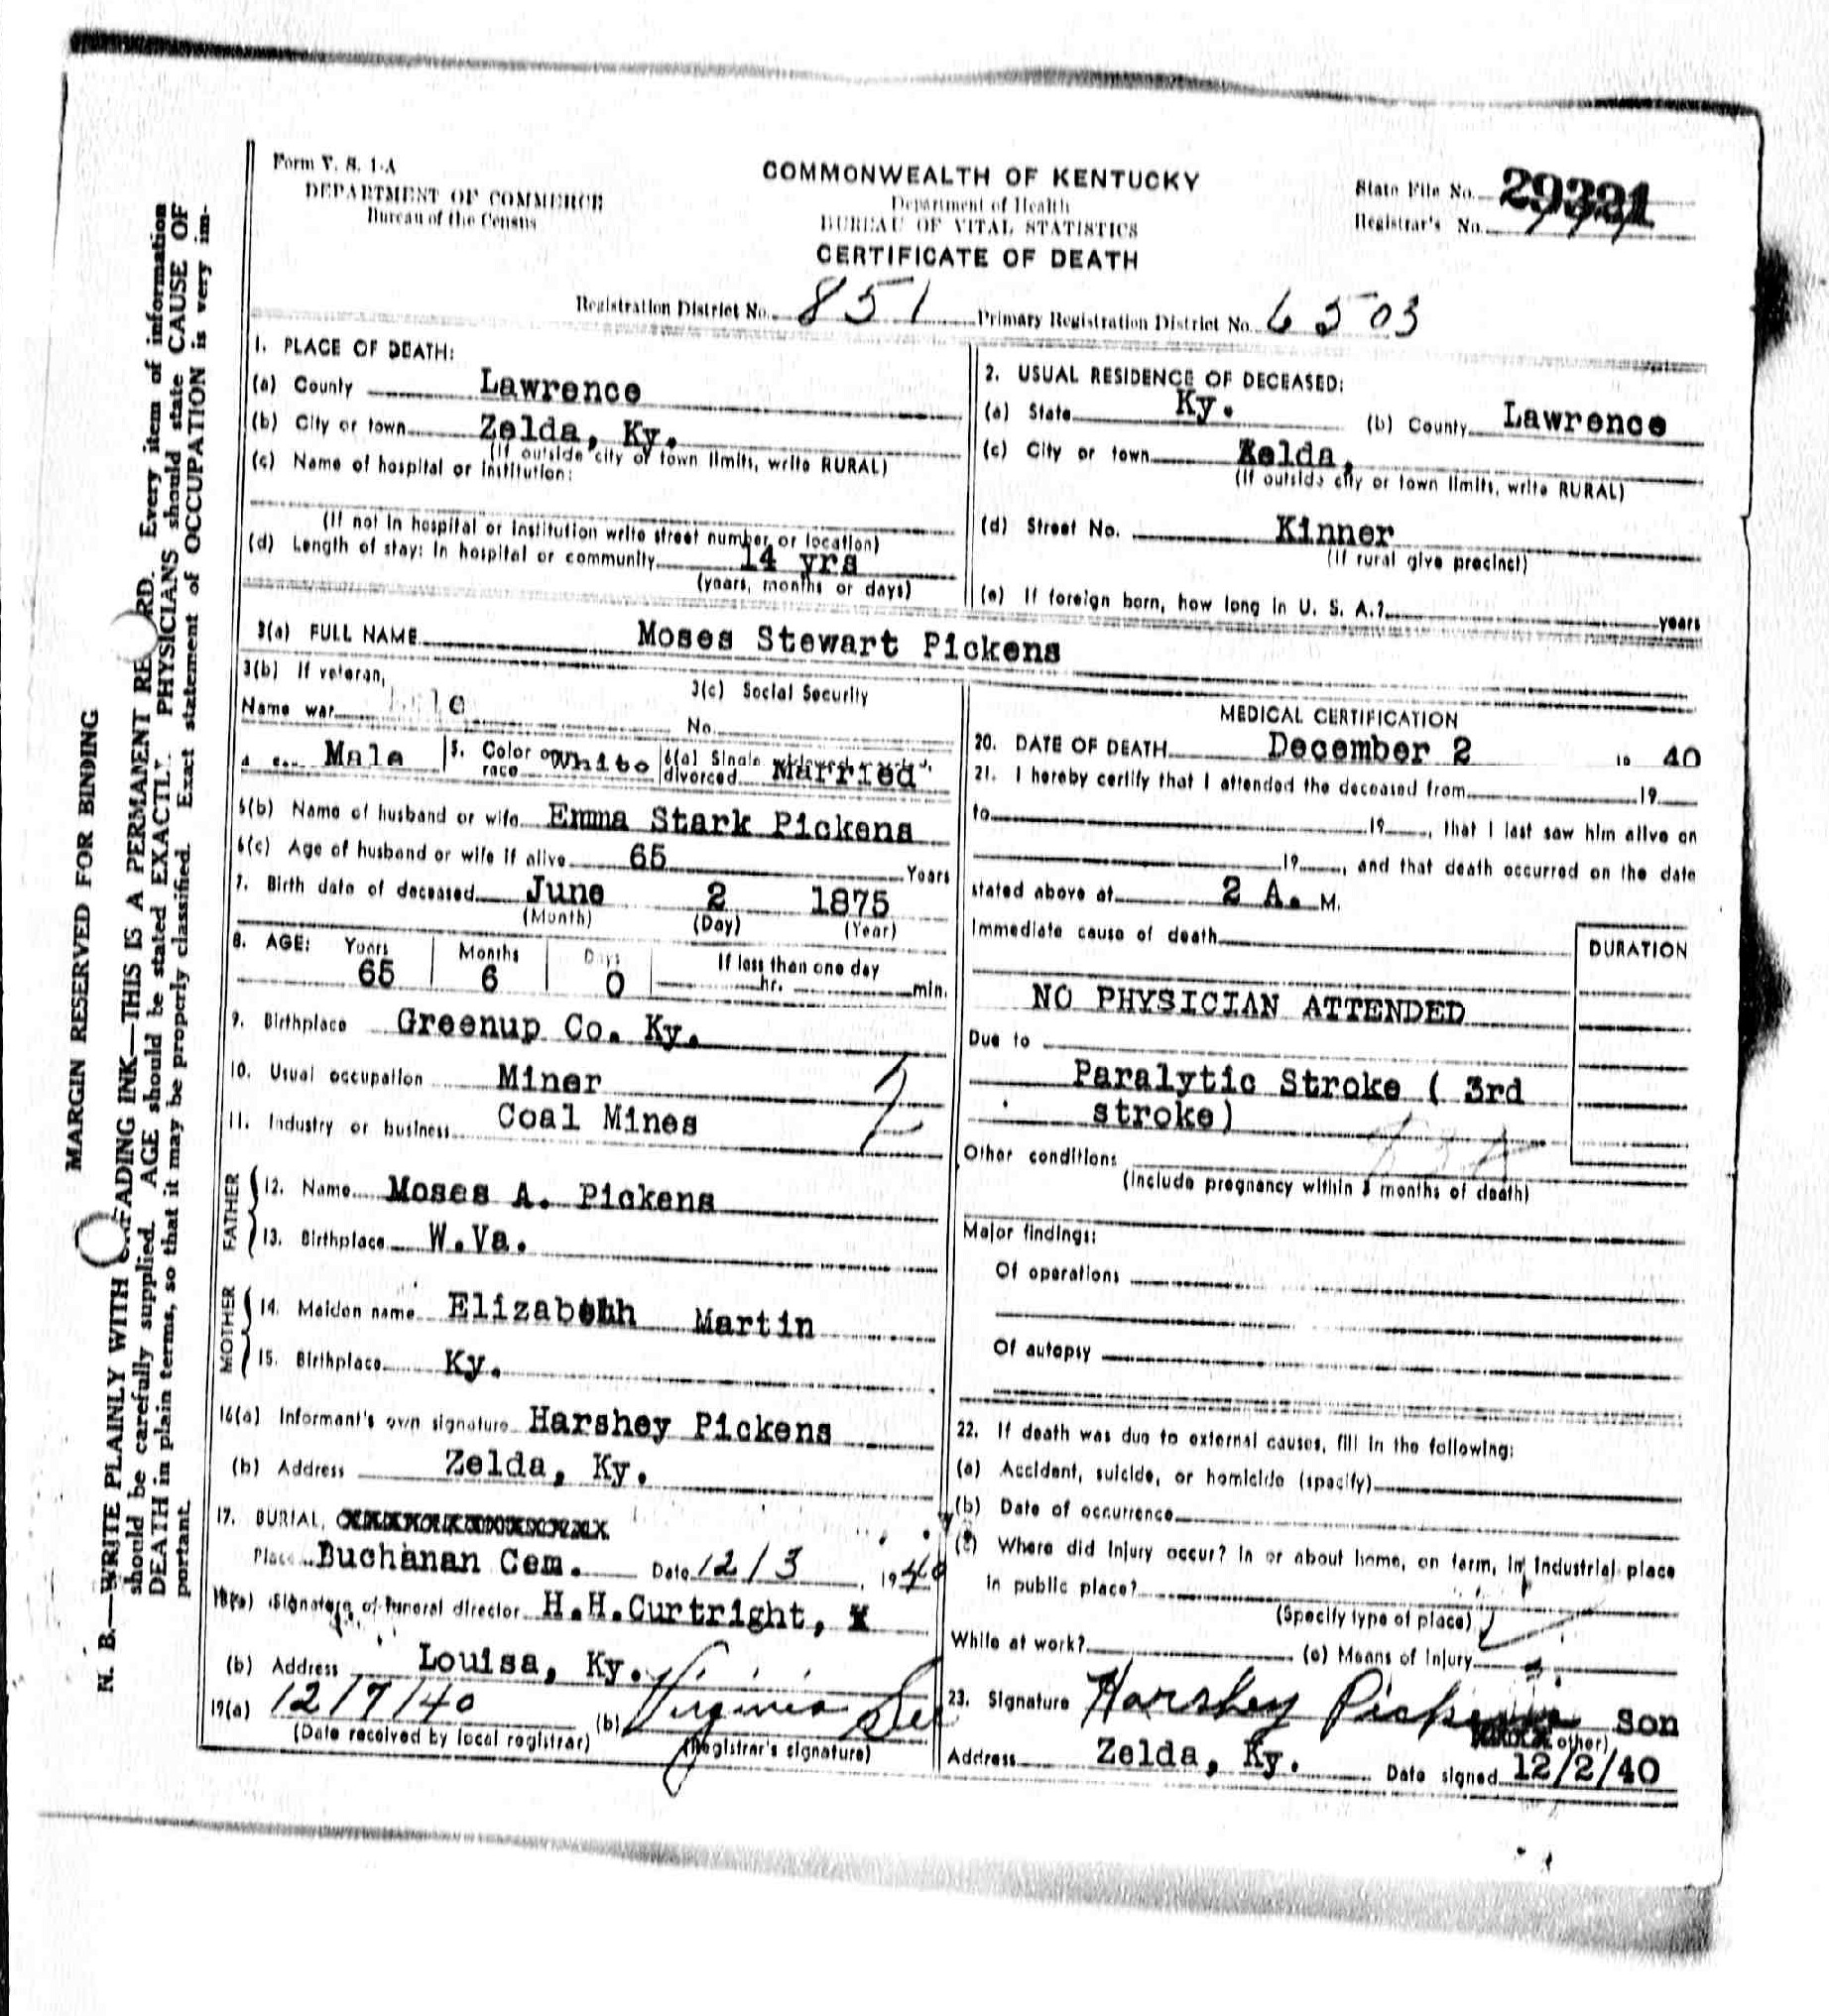 Form V. S. 1-A
DEPARTMENT OF COMMERCE
Bureau of the Census
COMMONWEALTH OF KENTUCKY
Department of Health
BUREAU OF VITAL STATISTICS
CERTIFICATE OF DEATH
State File No. 29321
Registrar's No.
Registration District No. 851 Primary Registration District No. 6503
1. PLACE OF DEATH:
(a) County Lawrence
(b) City or town Zelda, Ky.
(If outside city or town limits, write RURAL)
(c) Name of hospital or institution:
(If not in hospital or institution write street number or location)
(d) Length of stay: In hospital or community 14 yrs
(years, months or days)
2. USUAL RESIDENCE OF DECEASED:
(a) State Ky. (b) County Lawrence
(c) City or town Zelda,
(If outside city or town limits, write RURAL)
(d) Street No. Kinner
(If rural give precinct)
(e) If foreign born, how long in U. S. A.? years
3(a) FULL NAME Moses Stewart Pickens
3(b) If veteran,
Name war
3(c) Social Security
No.
Male 5. Color or race White 6(a) Single divorced Married
6(b) Name of husband or wife Emma Stark Pickens
6(c) Age of husband or wife if alive 65 Years
7. Birth date of deceased June 2 1875
(Month) (Day) (Year)
8. AGE: Years Months Days If less than one day
65 6 0 hr. min.
9. Birthplace Greenup Co. Ky.
10. Usual occupation Miner
11. Industry or business Coal Mines
FATHER
12. Name Moses A. Pickens
13. Birthplace W.Va.
MOTHER
14. Maiden name Elizabehh Martin
15. Birthplace Ky.
16(a) Informant's own signature Harshey Pickens
(b) Address Zelda, Ky.
17. BURIAL,
Place Buchanan Cem. Date 12/3, 1940
18(a) Signature of funeral director H.H.Curtright,
(b) Address Louisa, Ky.
19(a) 12/7/40 (b) Virginia
(Date received by local registrar) (Registrar's signature)
MEDICAL CERTIFICATION
20. DATE OF DEATH December 2 19 40
21. I hereby certify that I attended the deceased from 19
to 19, that I last saw him alive on
19, and that death occurred on the date
stated above at 2 A. M.
Immediate cause of death
DURATION
NO PHYSICIAN ATTENDED
Due to
Paralytic Stroke ( 3rd
stroke)
Other conditions
(Include pregnancy within 3 months of death)
Major findings:
Of operations
Of autopsy
22. If death was due to external causes, fill in the following:
(a) Accident, suicide, or homicide (specify)
(b) Date of occurrence
(c) Where did injury occur? In or about home, on farm, in industrial place
in public place?
(Specify type of place)
While at work? (e) Means of Injury
23. Signature Harshey Pickens Son
other)
Address Zelda, Ky. Date signed 12/2/40
MARGIN RESERVED FOR BINDING
N. B.—WRITE PLAINLY WITH UNFADING INK—THIS IS A PERMANENT RECORD. Every item of information
should be carefully supplied. AGE should be stated EXACTLY. PHYSICIANS should state CAUSE OF
DEATH in plain terms, so that it may be properly classified. Exact statement of OCCUPATION is very im-
portant.